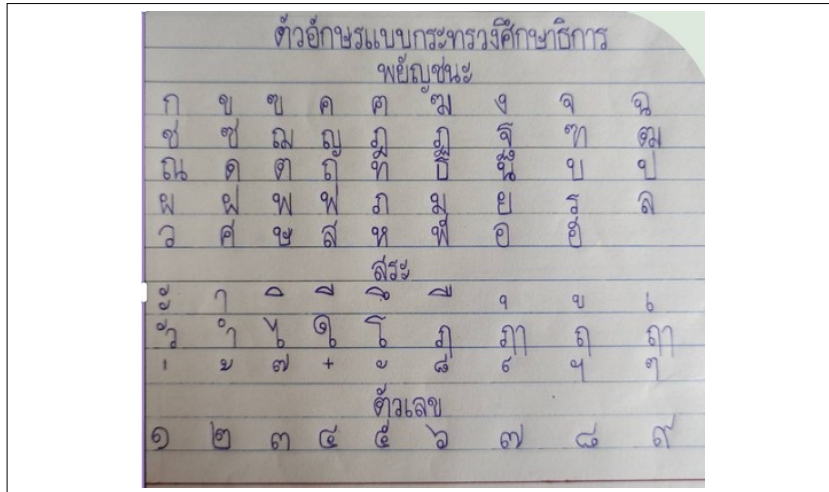 ตัวอักษรแบบกระทรวงศึกษาธิการ
พยัญชนะ
ก ข ฃ ค ฅ ฆ ง จ ฉ
ช ซ ฌ ญ ฎ ฏ ฐ ฑ ฒ
ณ ด ต ถ ท ธ น บ ป
ผ ฝ พ ฟ ภ ม ย ร ล
ว ศ ษ ส ห ฬ อ ฮ
สระ
ะ า ิ ี ึ ื ุ ู เ
ัว ำ ไ ใ โ ฦ ฦา ฤ ฤา
่ ้ ๊ ๋ ั ็ ์ ฯ ๆ
ตัวเลข
๑ ๒ ๓ ๔ ๕ ๖ ๗ ๘ ๙